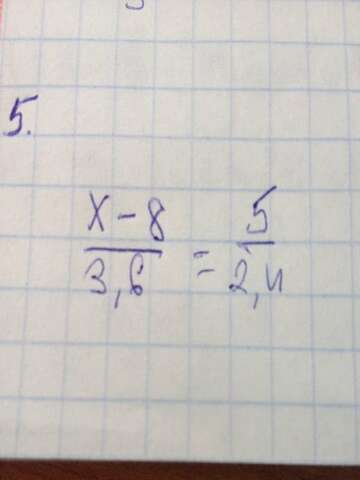 5.
x - 8 / 3,6 = 5 / 2,4